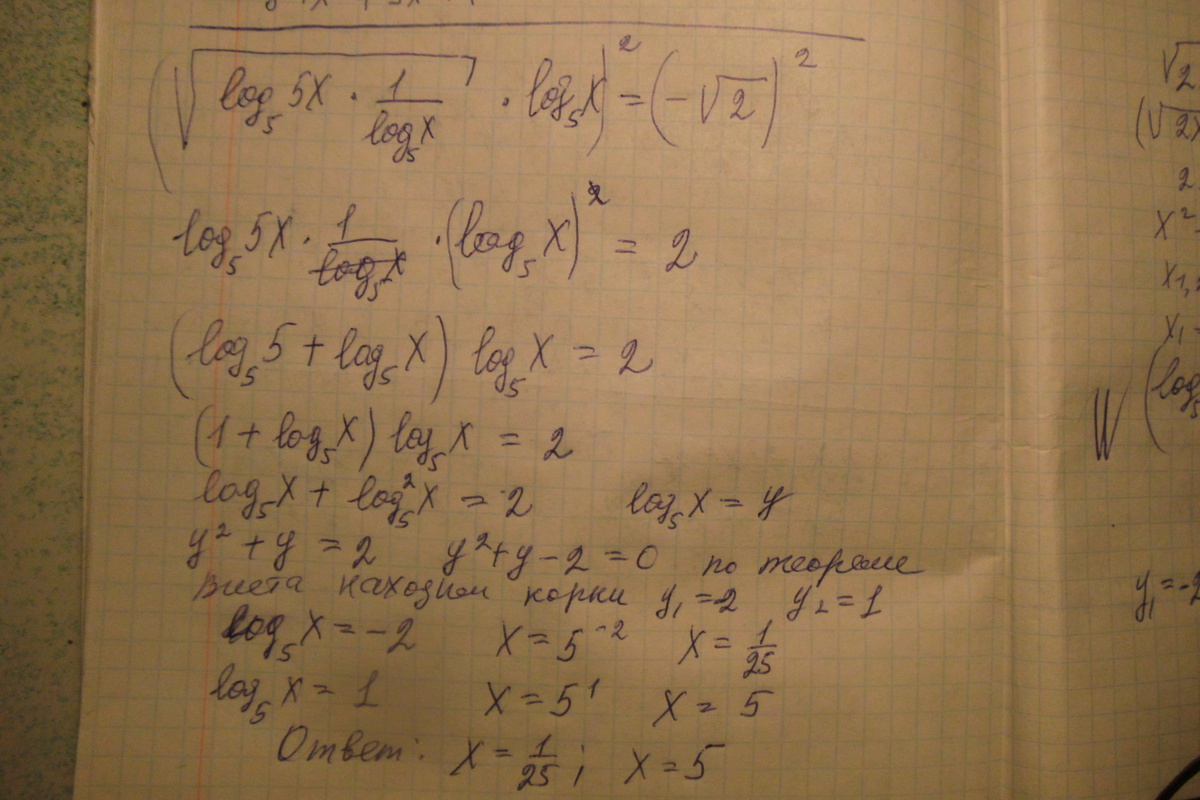 (√(log₅5x · 1/log₅x) · log₅x)² = (-√2)²
log₅5x · 1/log₅x · (log₅x)² = 2
(log₅5 + log₅x) log₅x = 2
(1 + log₅x) log₅x = 2
log₅x + log₅²x = 2 log₅x = y
y² + y = 2 y² + y - 2 = 0 по теореме
Виета находим корни y₁ = -2 y₂ = 1
log₅x = -2 x = 5⁻² x = 1/25
log₅x = 1 x = 5¹ x = 5
Ответ: x = 1/25 ; x = 5
√2
(√2x
2
x²-
x₁,
x₁
(log₅
y₁=-2